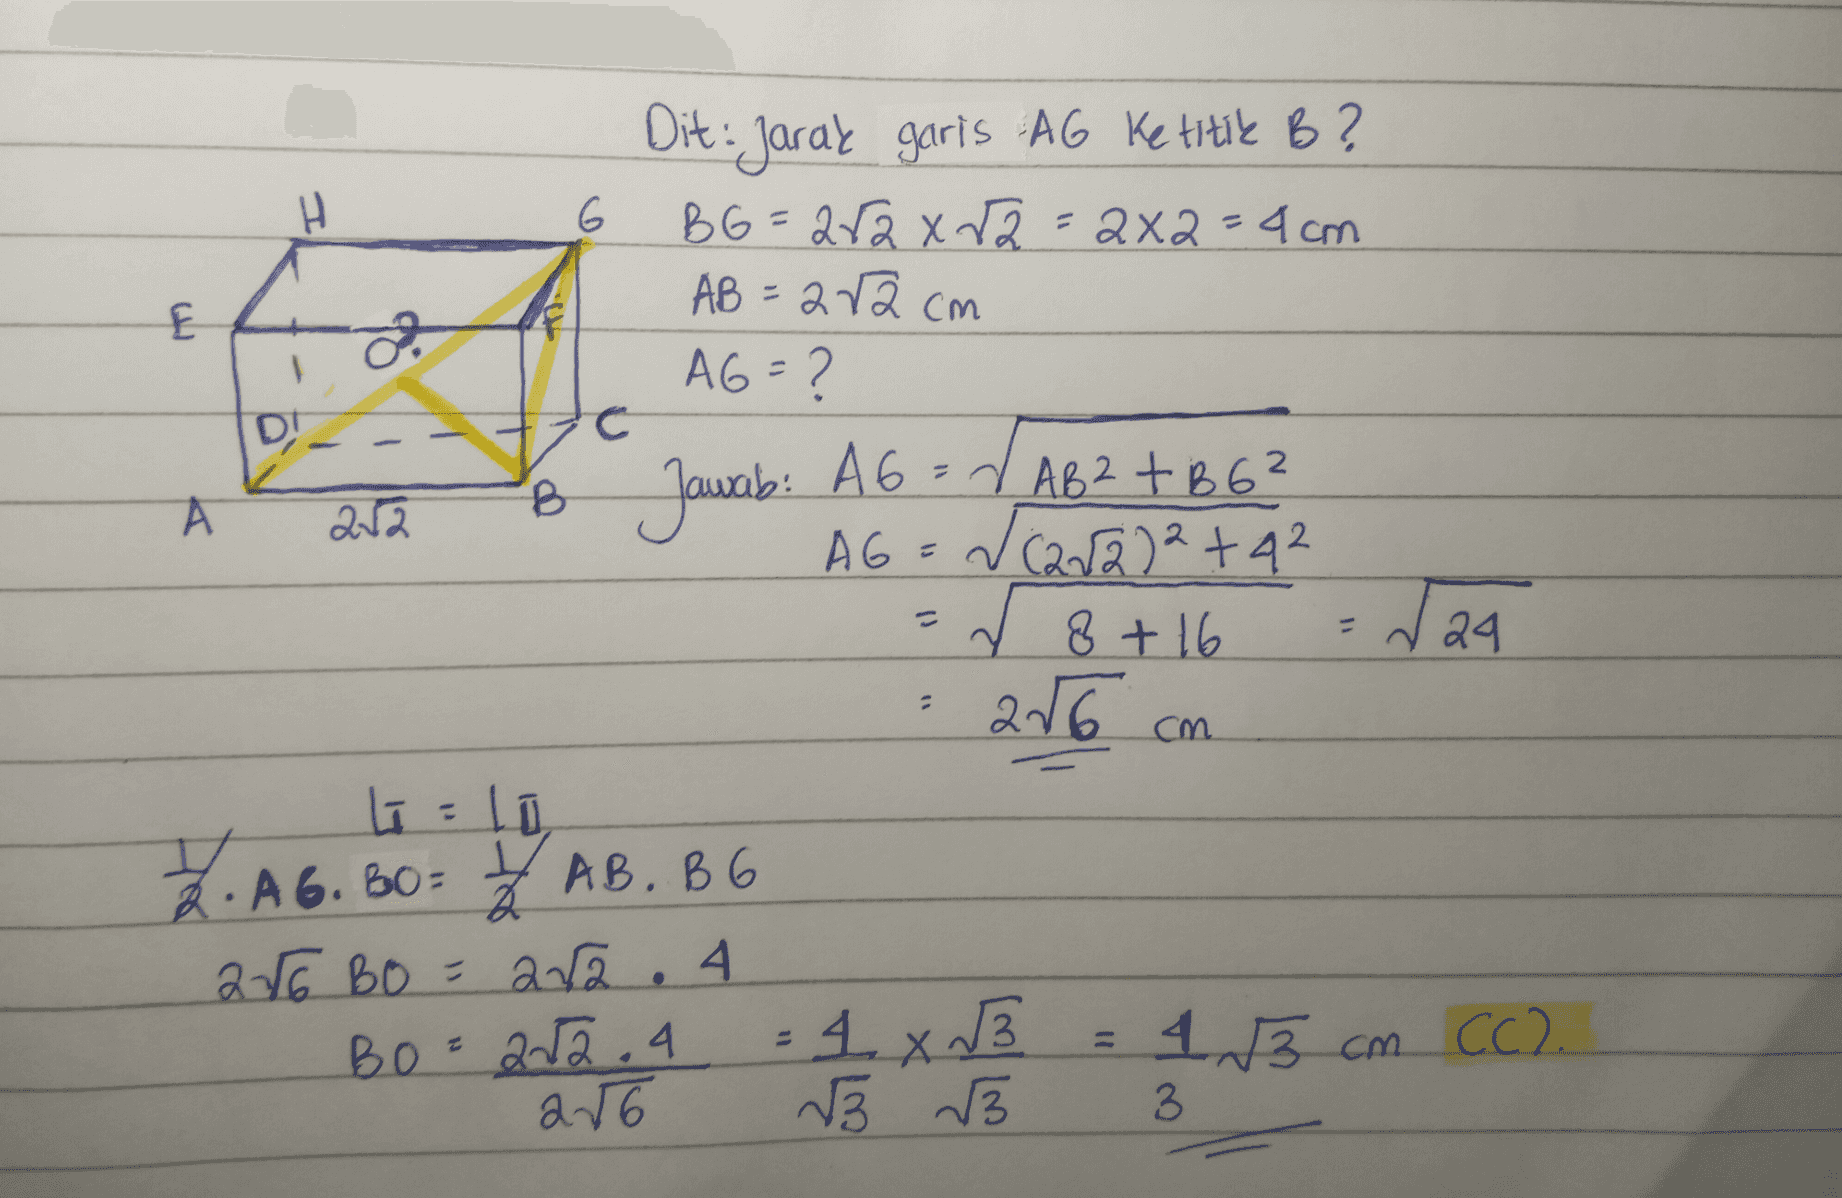 Dit: Jarak garis AG ke titik B?
H G
E F
O?
D C
A B
2√2
BG = 2√2 x √2 = 2x2 = 4 cm
AB = 2√2 cm
AG = ?
Jawab: AG = √AB2 + BG²
AG = √(2√2)² + 4²
= √8 + 16 = √24
= 2√6 cm
LI = LII
1/2 . AG. BO = 1/2 AB. BG
2√6 BO = 2√2 . 4
BO = 2√2 . 4 / 2√6 = 4/√3 x √3/√3 = 4/3 √3 cm (C).